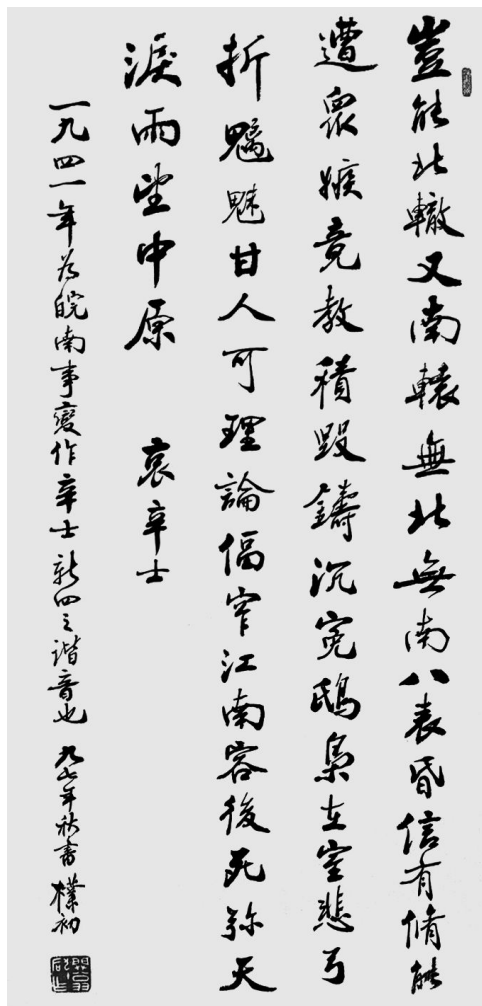 豈能北轍又南轅無北無南八表昏信有脩能
遭衆嫉竟教積毀鑄沉冤鴟梟在室悲弓
折魑魅甘人可理論偪窄江南容後死彌天
淚雨望中原 哀辛士
一九四一年為皖南事變作辛士新四之諧音也 九七年秋書 樸初